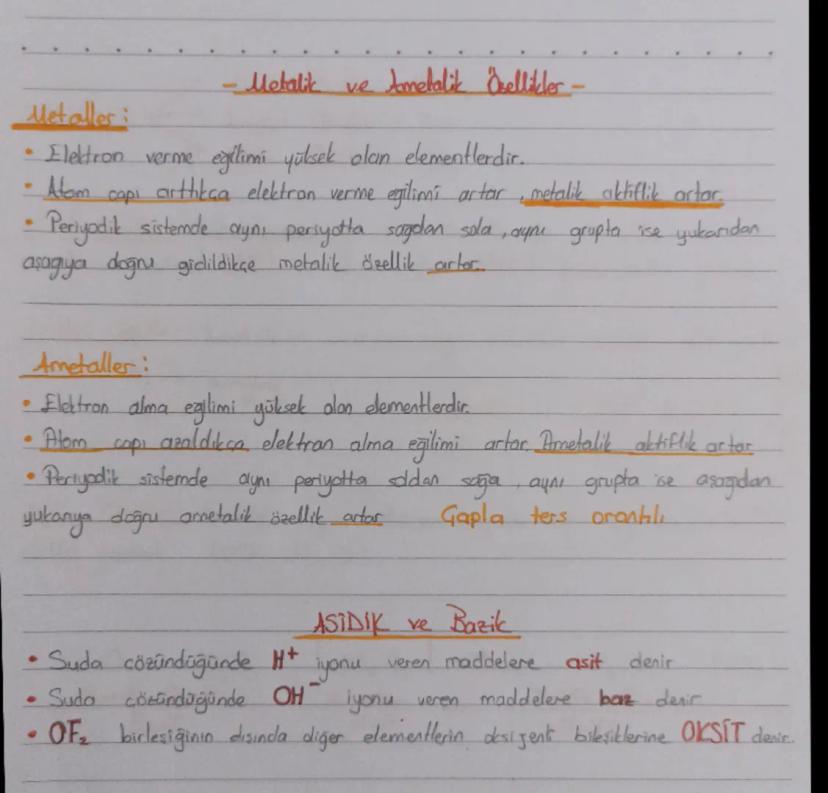 - Metalik ve Ametalik Özellikler -
Metaller :
• Elektron verme eğilimi yüksek olan elementlerdir.
• Atom çapı arttıkça elektron verme eğilimi artar, metalik aktiflik artar.
• Periyodik sistemde aynı periyotta sağdan sola, aynı grupta ise yukarıdan
aşağıya doğru gidildikçe metalik özellik artar.
Ametaller :
• Elektron alma eğilimi yüksek olan elementlerdir.
• Atom çapı azaldıkça elektran alma eğilimi artar. Ametalik aktiflik artar
• Periyodik sistemde aynı periyotta soldan sağa, aynı grupta ise aşağıdan
yukarıya doğru ametalik özellik artar Çapla ters orantılı
ASİDİK ve Bazik
• Suda çözündüğünde H⁺ iyonu veren maddelere asit denir
• Suda çözündüğünde OH⁻ iyonu veren maddelere baz denir
• OF₂ birleşiğinin dışında diğer elementlerin oksijenli bileşiklerine OKSİT denir.